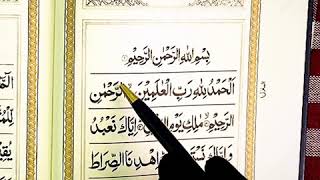 بِسْمِ اللّٰهِ الرَّحْمٰنِ الرَّحِيْمِ
اَلْحَمْدُ لِلّٰهِ رَبِّ الْعٰلَمِيْنَ الرَّحْمٰنِ
الرَّحِيْمِ مٰلِكِ يَوْمِ اِيَّاكَ نَعْبُدُ
وَاِيَّاكَ اهْدِنَا الصِّرَاطَ